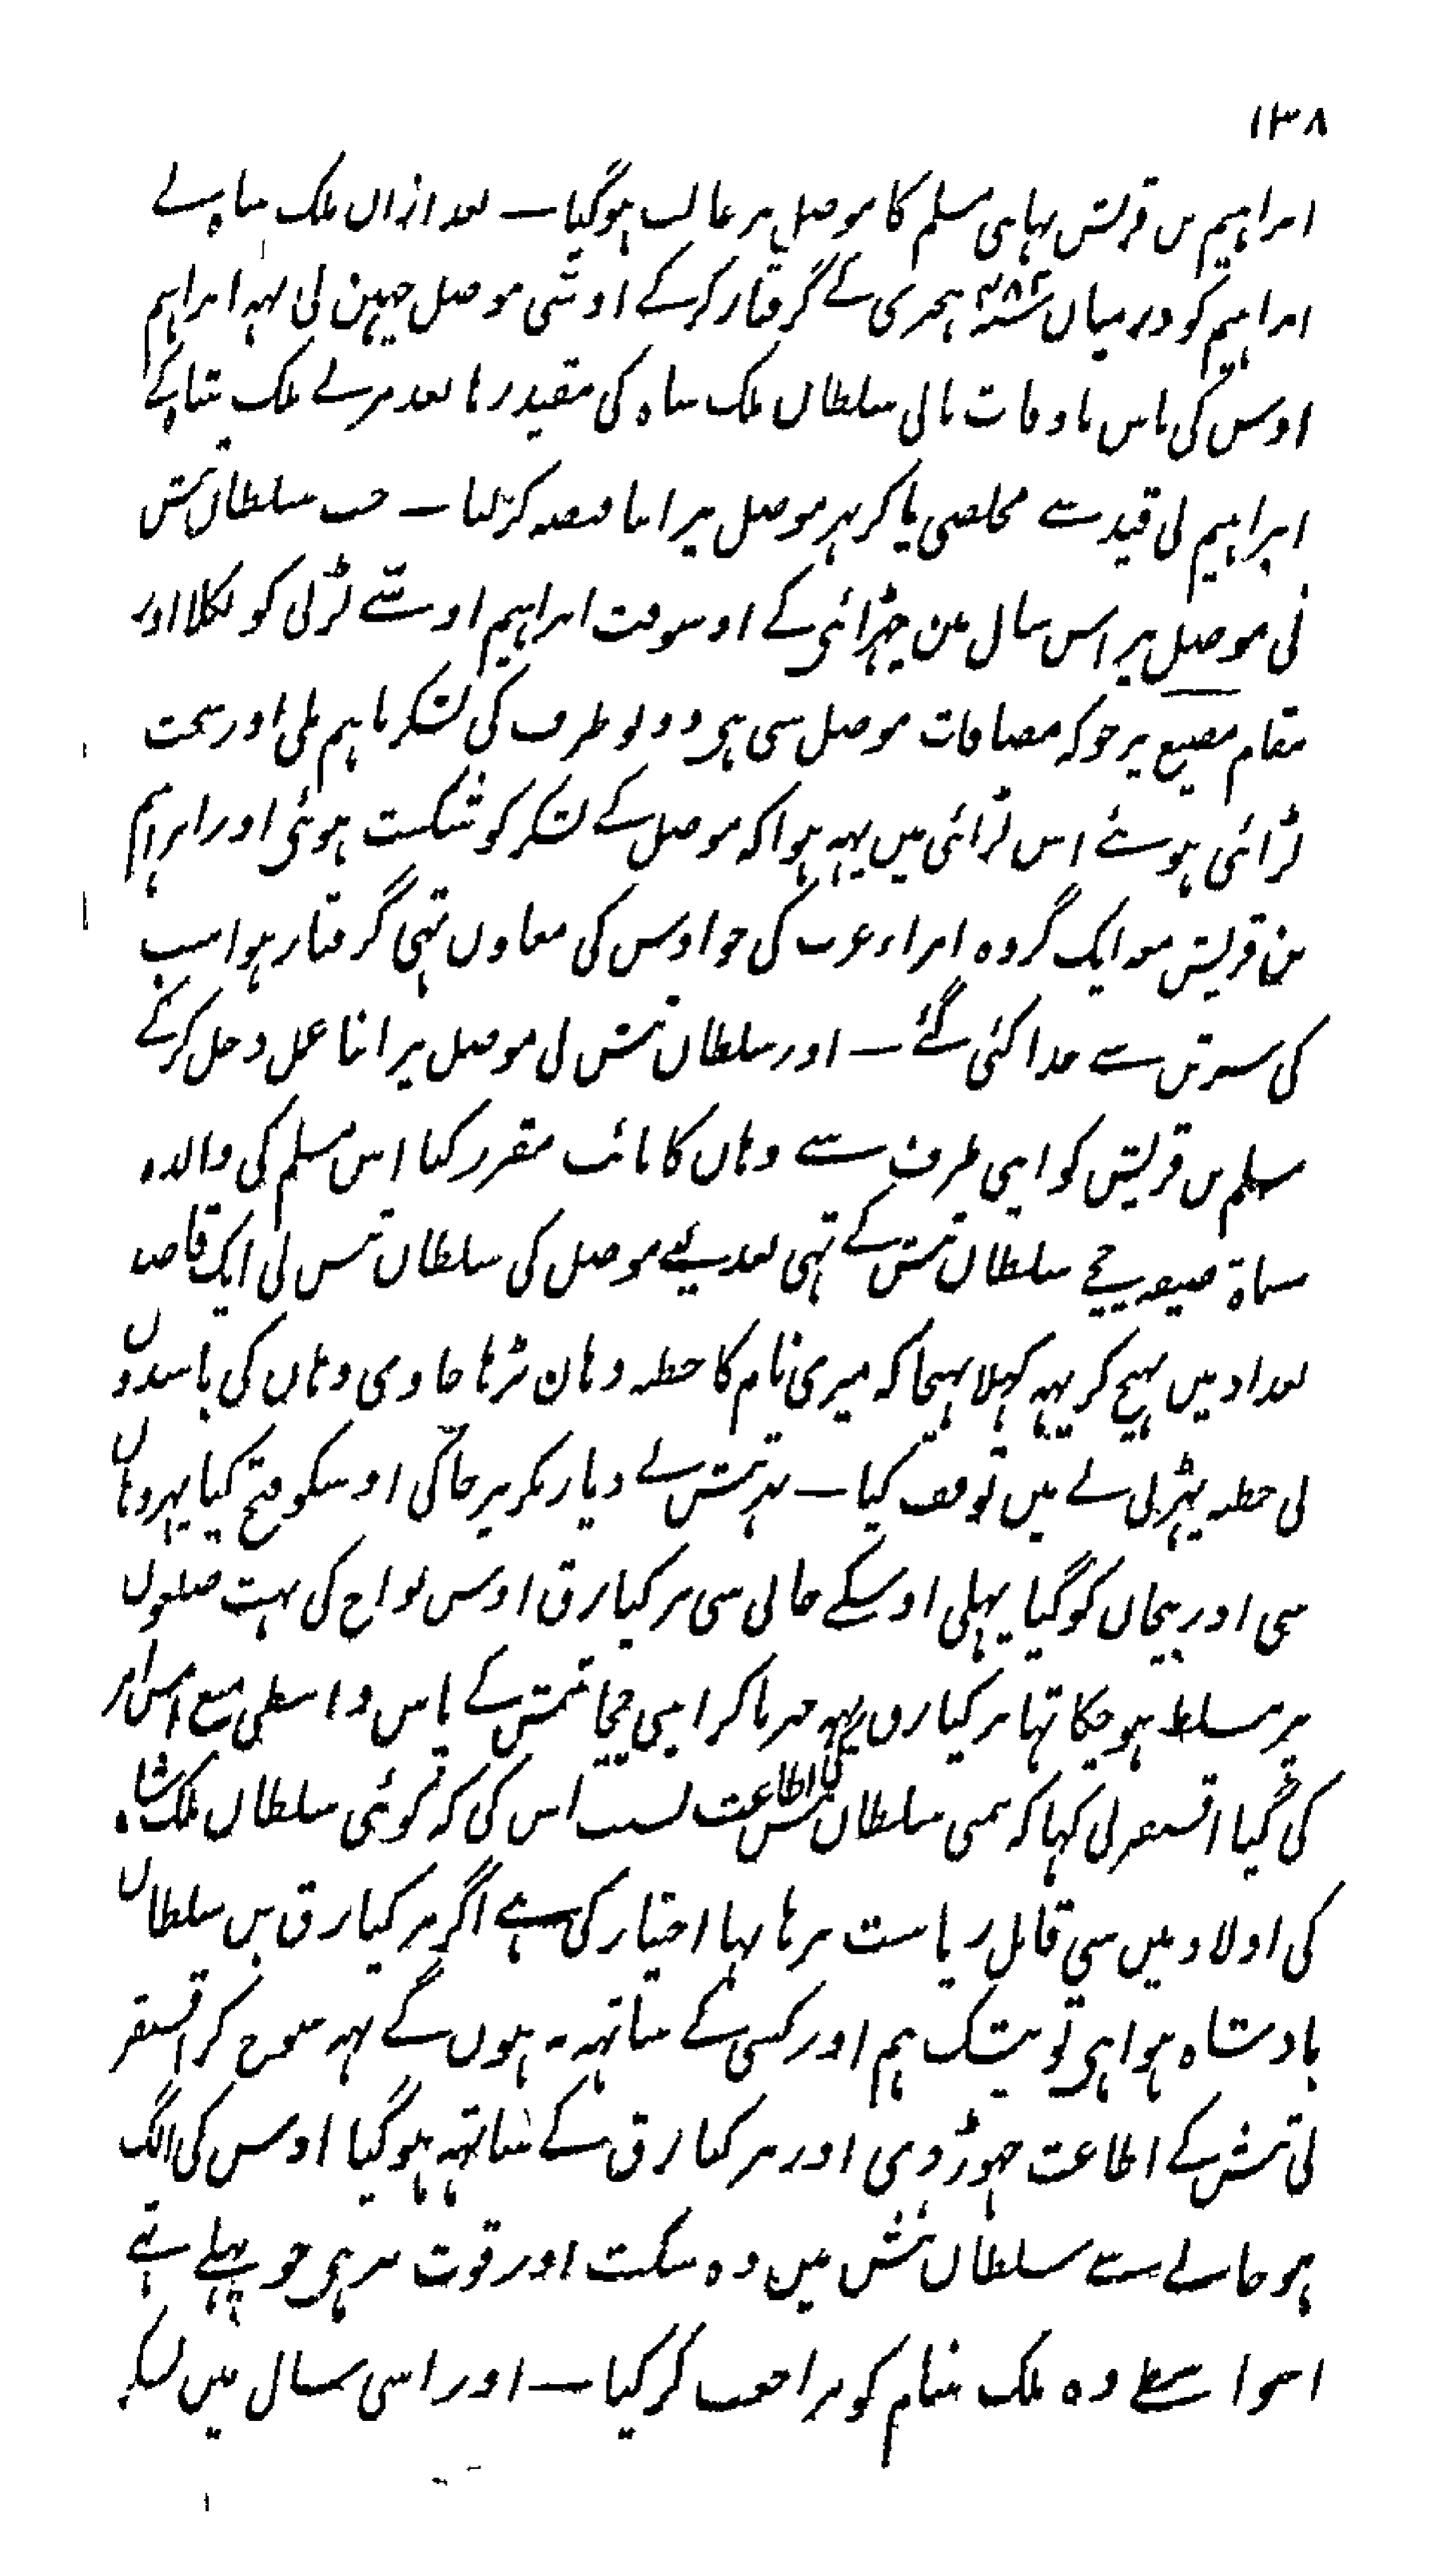 ۱۳۸
ابراہیم بن قریش بہائی مسلم کا موصل پر غالب ہوگیا — بعد ازاں ملک شاہ نے
ابراہیم کو درمیان سنہ ۴۸۲ ہجری کے گرفتار کرکے اوسّی موصل چہین لی یہہ ابراہیم
اوس کی پاس تا وفات پانی سلطان ملک شاہ کی مقید رہا بعد مرنے ملک شاہ کے
ابراہیم نی قید سے مخلصی پا کر پہر موصل پر اپنا قبضہ کر لیا — جب سلطان تتش
نی موصل پر اس سال میں چہڑائی کے اوسوقت ابراہیم اوسّے لڑنی کو نکلا اور
مقام مضیع پر جو کہ مضافات موصل سی ہی دونو طرف کی لشکر باہم ملی اور سخت
لڑائی ہوئے اس لڑائی میں یہہ ہوا کہ موصل کے لشکر کو شکست ہوئی اور ابراہیم
بن قریش معہ ایک گروہ امراء عرب کی جو اوس کی معاون تہی گرفتار ہوا سب
کی سر تن سے جدا کئی گئے — اور سلطان تتش نی موصل پر اپنا عمل دخل کرکے
مسلم بن قریش کو اپنی طرف سے وہاں کا نائب مقرر کیا اس مسلم کی والدہ
مسماۃ صفیہ چچی سلطان تتش کے تہی بعد لینے موصل کی سلطان تتش نی ایک قاصد
بغداد میں بہیج کر یہہ کہلا بہیجا کہ میری نام کا خطبہ وہان پڑہا جاوی وہاں کی باشندوں
نی خطبہ پڑہنی میں توقف کیا — پہر تتش نے دیار بکر پر جا کی اوسکو فتح کیا پہر وہاں
سی اذربیجان کو گیا پہلی اوسکے جانی سی برکیارق اوس نواح کی بہت ضلعوں
پر مسلط ہو چکا تہا برکیارق یہہ خبر پا کر اپنی چچا تتش کے پاس واسطی منع اس امر
کی گیا اقسنقر نی کہا کہ ہمی سلطان تتش کی اطاعت بسبب اس کی کہ کوئی سلطان ملک شاہ
کی اولاد میں سی قابل ریاست نرہا تہا اختیار کی ہے اگر برکیارق بن سلطان
بادشاہ ہوا ہی تو بیشک ہم اور کسی کے ساتہہ نہ ہوں گے یہہ سوچ کر اقسنقر
نی تتش کے اطاعت چہوڑ دی اور برکیارق کے ساتہہ ہوگیا اوس کی الگ
ہو جانے سے سلطان تتش میں وہ سکت اور قوت نرہی جو پہلے تہے
اسواسطے وہ ملک شام کو مراجعت کر گیا — اور اسی سال میں لشکر